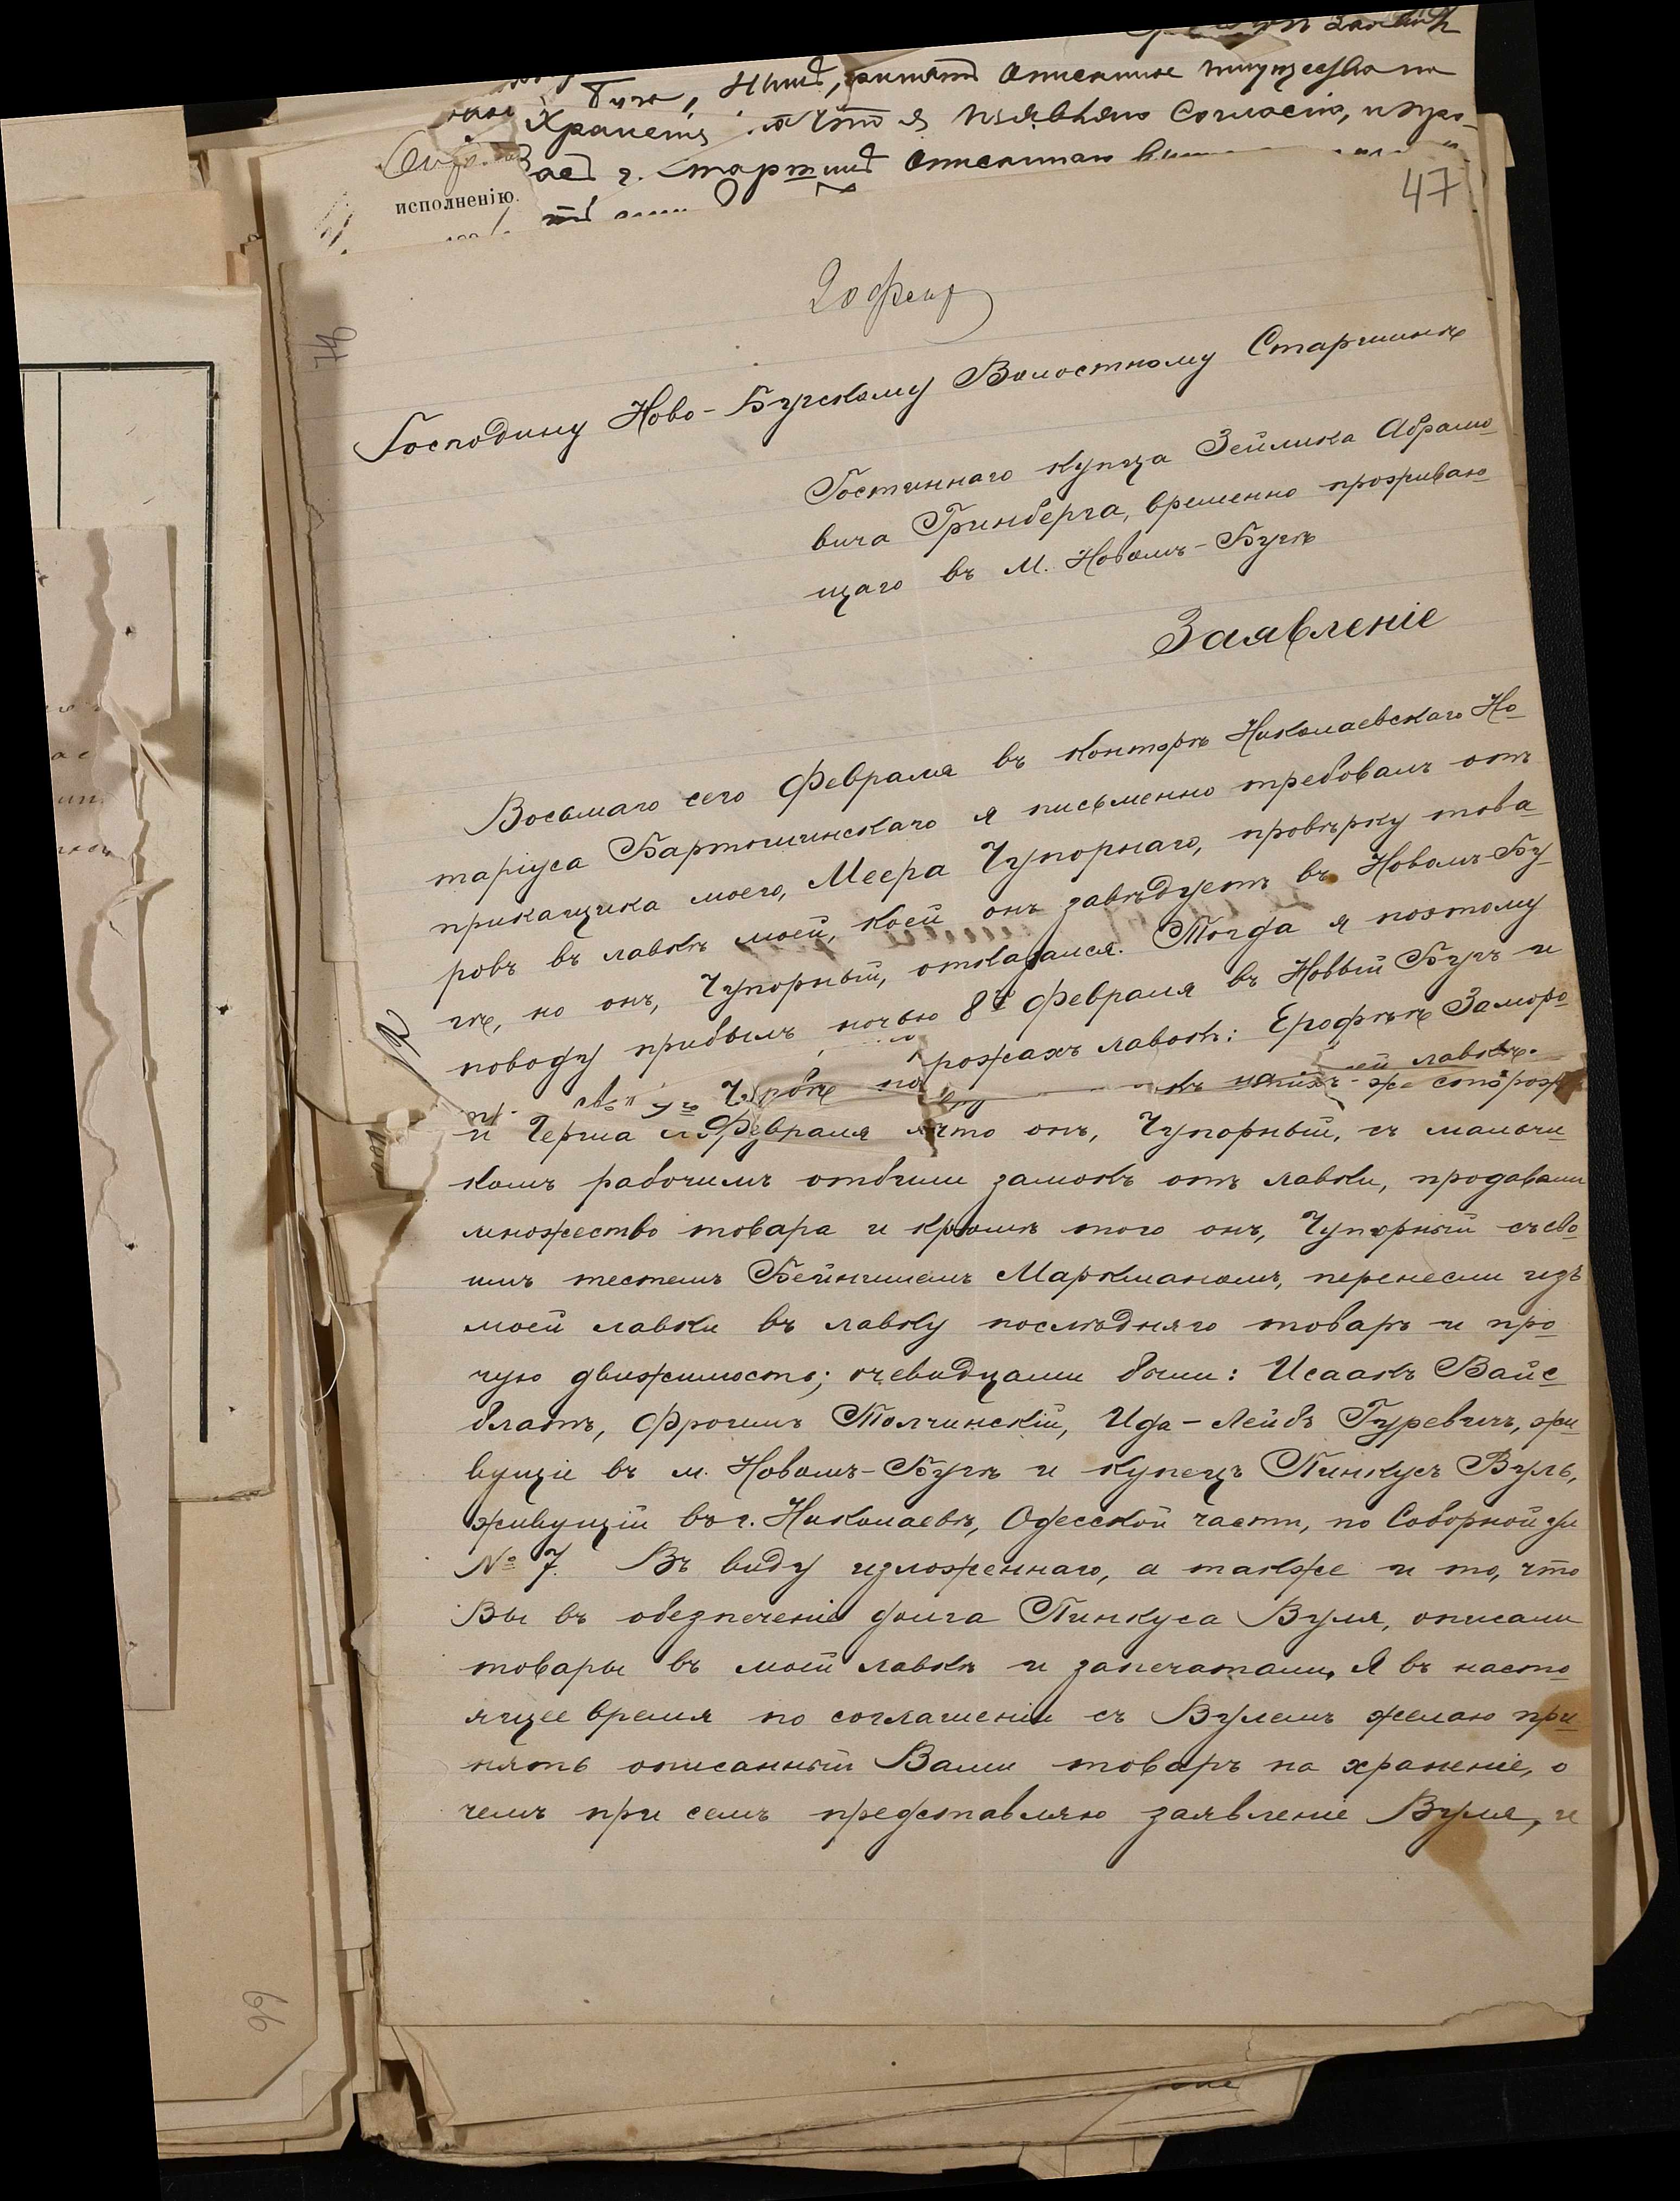 Буга, описанное имущество на
храненiя на что я изъявляю согласiе, и про-
г. Старшина
исполненiю.
47
20 февр
Господину Ново-Бугскому Волостному Старшинѣ
купца Зейлика Абрамо-
вича Гринберга, временно проживаю-
щаго въ м. Новомъ-Бугѣ
Заявленiе
Восьмаго сего Февраля въ конторѣ Николаевскаго Но-
тарiуса я письменно требовалъ отъ
прикащика моего, Меера Чупорнаго, провѣрку това-
ровъ въ лавкѣ моей, коей онъ завѣдуетъ въ Новомъ-Бу-
гѣ, но онъ, Чупорный, отказался. Тогда я поэтому
поводу прибылъ ночью 8го Февраля въ Новый Бугъ и
рожахъ лавокъ: Ерофѣѣ Заморо-
ей лавкѣ.
и Февраля что онъ, Чупорный, съ мальчи-
комъ рабочимъ отбили замокъ отъ лавки, продавали
множество товара и кромѣ того онъ, Чупорный съ сво-
имъ тестемъ Бейнишемъ Маркманомъ, перенесли изъ
моей лавки въ лавку послѣдняго товаръ и про-
чую движимость; очевидцами были: Исаакъ Вайс-
блатъ, Фроимъ Толчинскiй, Ида-Лейбъ Гуревичъ, жи-
вущiе въ м. Новомъ-Бугѣ и купецъ Пинкусъ Вуль,
живущiй въ г. Николаевѣ, Одесской части, по Соборной ул
№ 7. Въ виду изложеннаго, а также и то, что
Вы въ обезпеченiе долга Пинкуса Вуля, описали
товары въ моей лавкѣ и запечатали, Я въ насто-
ящее время по соглашенiи съ Вулемъ желаю при-
нять описанный Вами товаръ на храненiе, о
чемъ при семъ представляю заявленiе Вуля, и
66